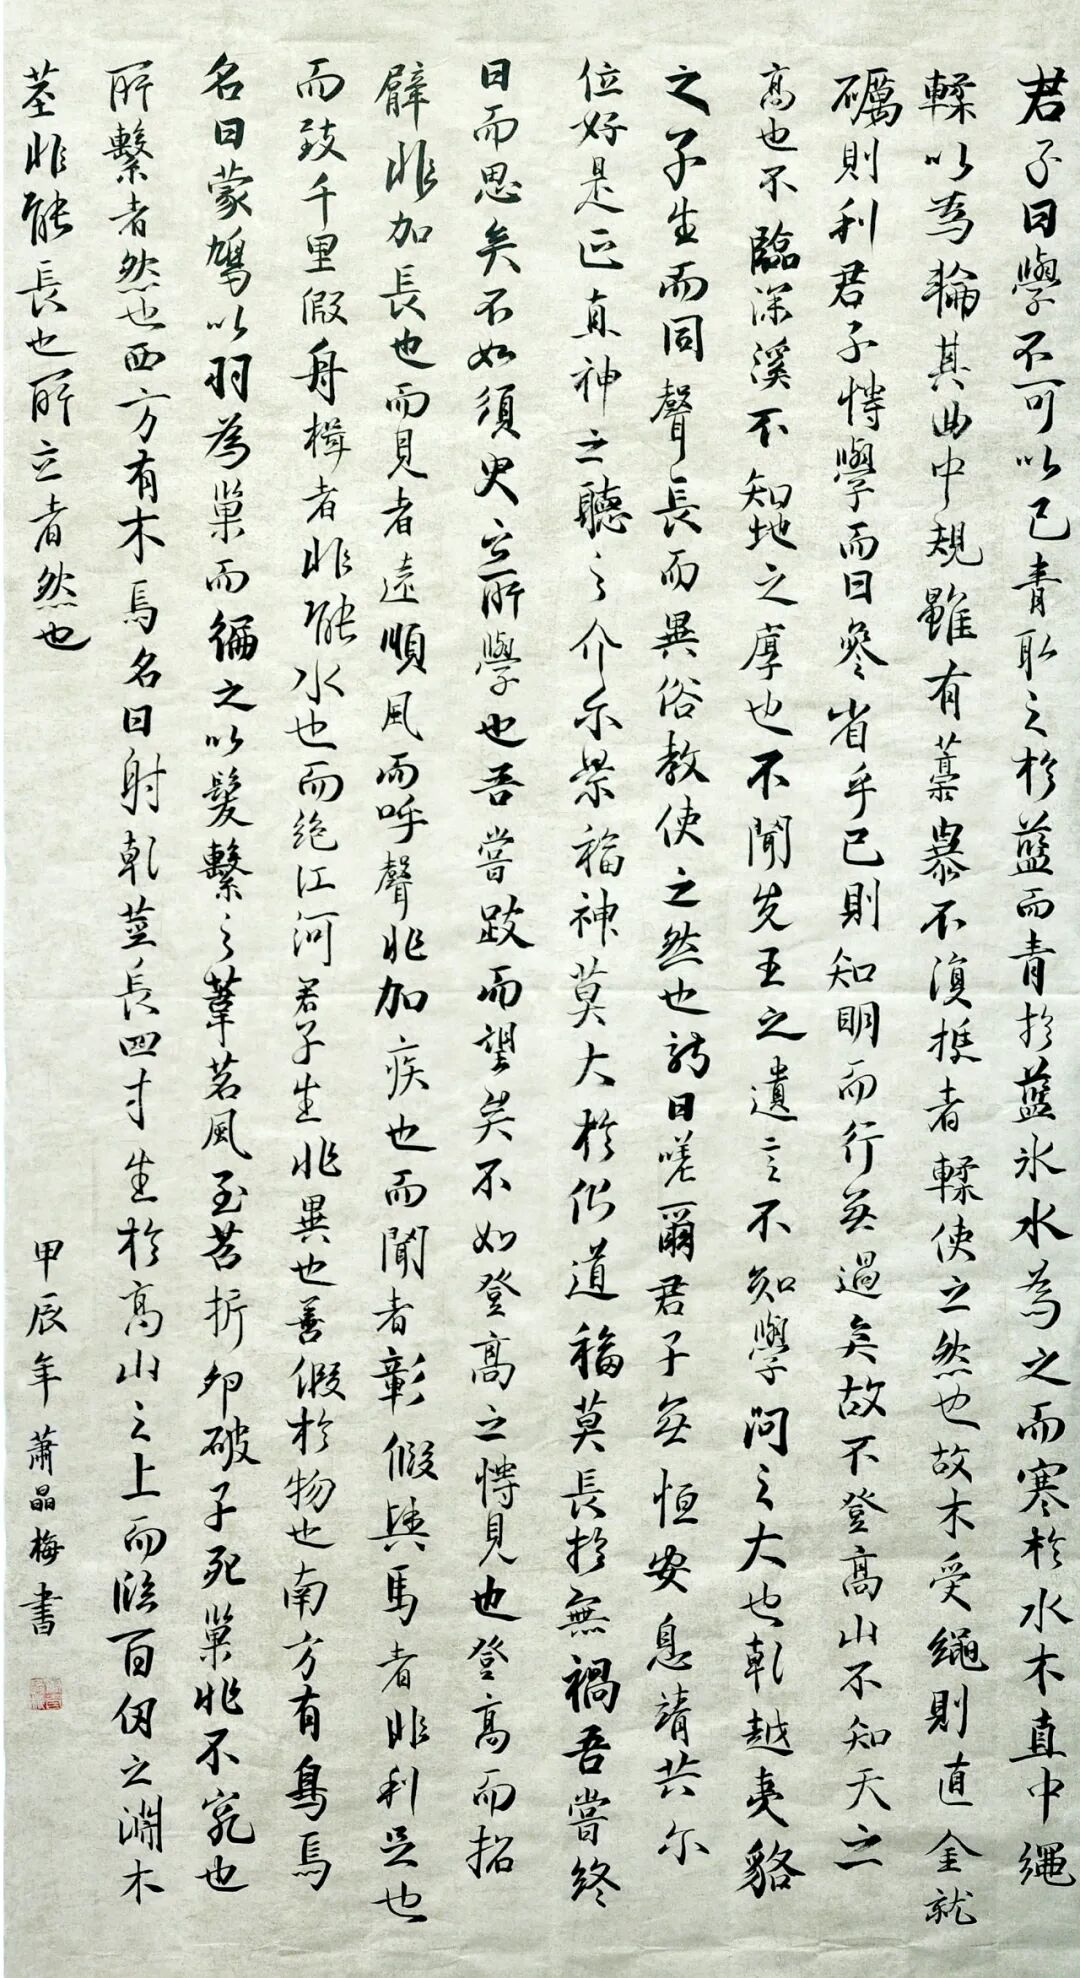 君子曰學不可以已青取之於藍而青於藍冰水為之而寒於水木直中繩
輮以為輪其曲中規雖有藁暴不復挺者輮使之然也故木受繩則直金就
礪則利君子博學而日參省乎己則知明而行無過矣故不登高山不知天之
高也不臨深溪不知地之厚也不聞先王之遺言不知學問之大也乾越夷貉
之子生而同聲長而異俗教使之然也詩曰嗟爾君子無恒安息靖共爾
位好是正直神之聽之介爾景福神莫大於化道福莫長於無禍吾嘗終
日而思矣不如須臾之所學也吾嘗跂而望矣不如登高之博見也登高而招
臂非加長也而見者遠順風而呼聲非加疾也而聞者彰假輿馬者非利足也
而致千里假舟楫者非能水也而絕江河君子生非異也善假於物也南方有鳥焉
名曰蒙鳩以羽為巢而編之以髮繫之葦苕風至苕折卵破子死巢非不完也
所繫者然也西方有木焉名曰射乾莖長四寸生於高山之上而臨百仞之淵木
莖非能長也所立者然也
甲辰年蕭晶梅書